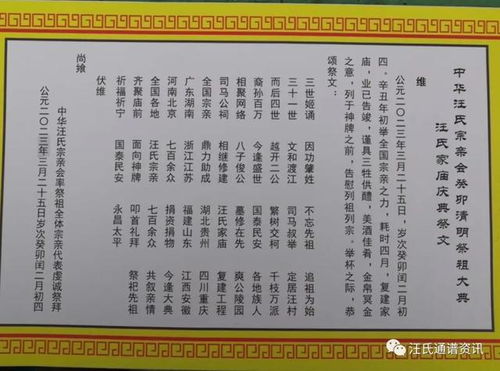 中华汪氏宗亲会癸卯清明祭祖大典
汪氏家庙庆典祭文
维
公元二0二三年三月二十五日，岁次癸卯闰二月初
四。辛丑年初举全国宗亲之力，耗时四月，复建家
庙，业已告竣，谨具三牲供醴，美酒佳肴，金帛冥金
之意，列于神牌之前，告慰列祖列宗。举杯之际，恭
颂祭文：
三世姬诵 因功肇姓 不忘先祖 追祖为始
三十一世 文和渡江 司马叔举 定居汪村
而后四世 越开二公 繁树交柯 千枝万派
裔孙百万 今逢盛世 国泰民安 各地族人
相聚网络 八子俊公 墓修在先 爽公陵园
司马公祠 相继修建 汪氏家庙 复建工程
全国宗亲 鼎力助成 湖北贵州 四川重庆
广东湖南 浙江江苏 福建 江西安徽
河南北京 七百余众 捐资捐物 今逢大典
全国各地 汪氏宗亲 七百余众 共叙亲情
齐聚庙前 面向神牌 叩首礼拜 祭祀先祖
祈福祈宁 国泰民安 永昌太平
伏维
尚飨
中华汪氏宗亲会率祭祖全体宗亲代表虔诚祭拜
公元二0二三年三月二十五日岁次癸卯闰二月初四
汪氏通谱资讯